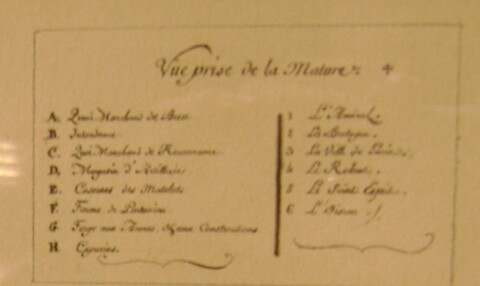 Vüe prise de la Mature
A. Quai Marchand de Brest
B. Intendance
C. Quai Marchand de Recouvrance
D. Magasin d'Artillerie
E. Casernes des Matelots
F. Ferme de
G. Forge aux Ancres, Constructions
H. Capucins.
1 L'Amiral.
2 La Bretagne.
3 La Ville de
4 Le Robuste.
5 Le Saint Esprit.
6